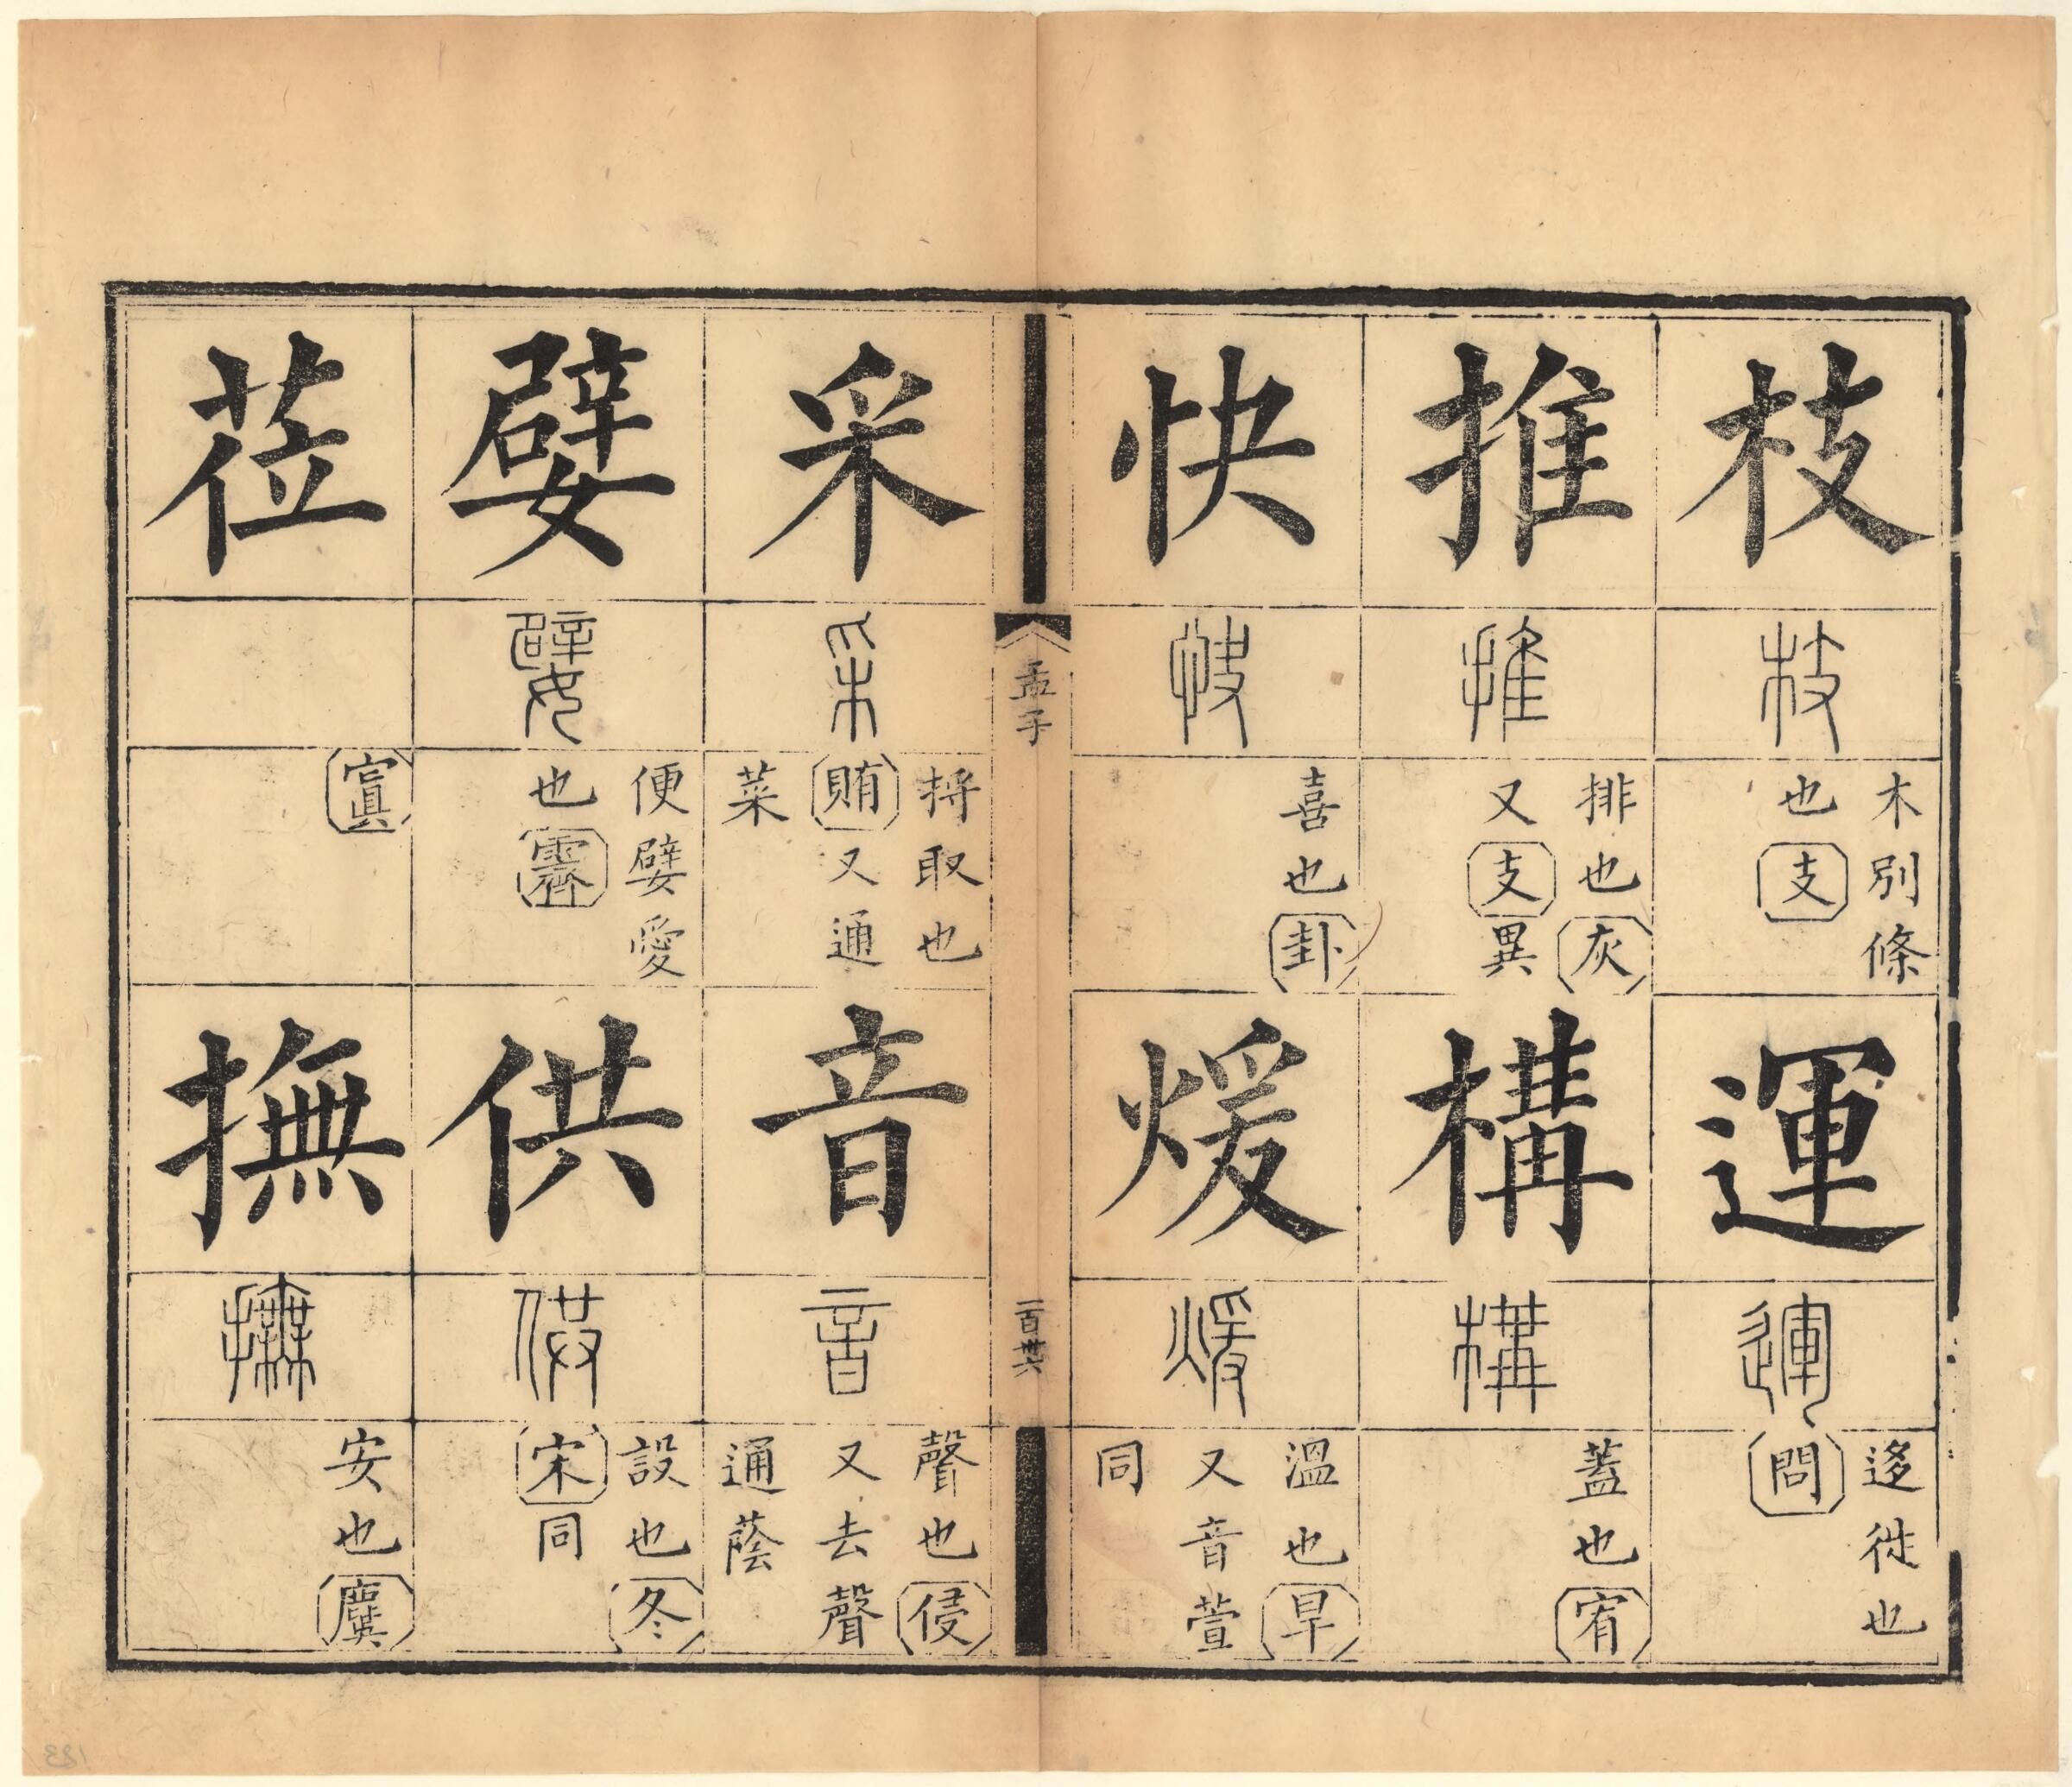 枝
枝
木別條
也支
運
運
迻徙也
問
推
推
排也灰
又支異
構
構
蓋也宥
快
快
喜也卦
煖
煖
溫也旱
又音萱
同
孟子
一百卅六
采
采
捋取也
賄又通
菜
音
音
聲也侵
又去聲
通蔭
嬖
嬖
便嬖愛
也霽
供
供
設也冬
宋同
莅
寘
撫
撫
安也麌
123